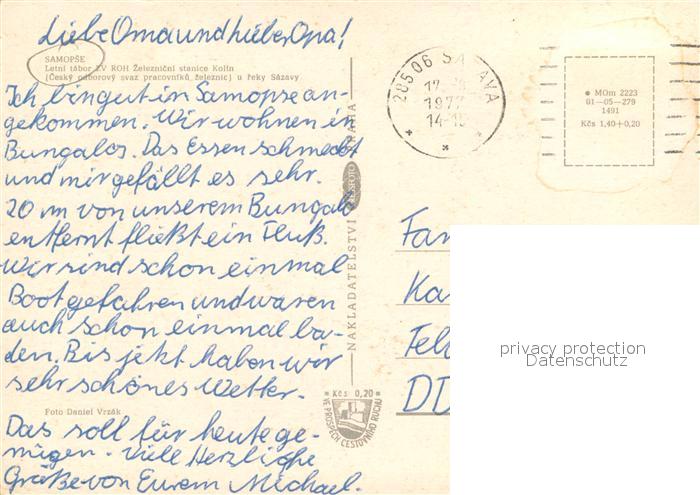 Liebe Oma und lieber Opa!
SAMOPŠE
Letní tábor ZV ROH Železniční stanice Kolín
(Český odborový svaz pracovníků železnic) u řeky Sázavy
Ich bin gut in Samopse an-
gekommen. Wir wohnen in
Bungalos. Das Essen schmeckt
und mir gefällt es sehr.
20 m von unserem Bungalo
entfernt fließt ein Fluß.
Wir sind schon einmal
Boot gefahren und waren
auch schon einmal ba-
den. Bis jetzt haben wir
sehr schönes Wetter.
Foto Daniel Vrzák
Das soll für heute ge-
nügen. Viele Herzliche
Grüße von Eurem Michael.
NAKLADATELSTVÍ PRESSFOTO PRAHA
Kčs 0,20
VE PROSPĚCH CESTOVNÍHO RUCHU
285 06 SÁZAVA
1977
MOm 2223
01-05-279
1491
Kčs 1,40+0,20
Fam
Ka
DD
privacy protection
Datenschutz